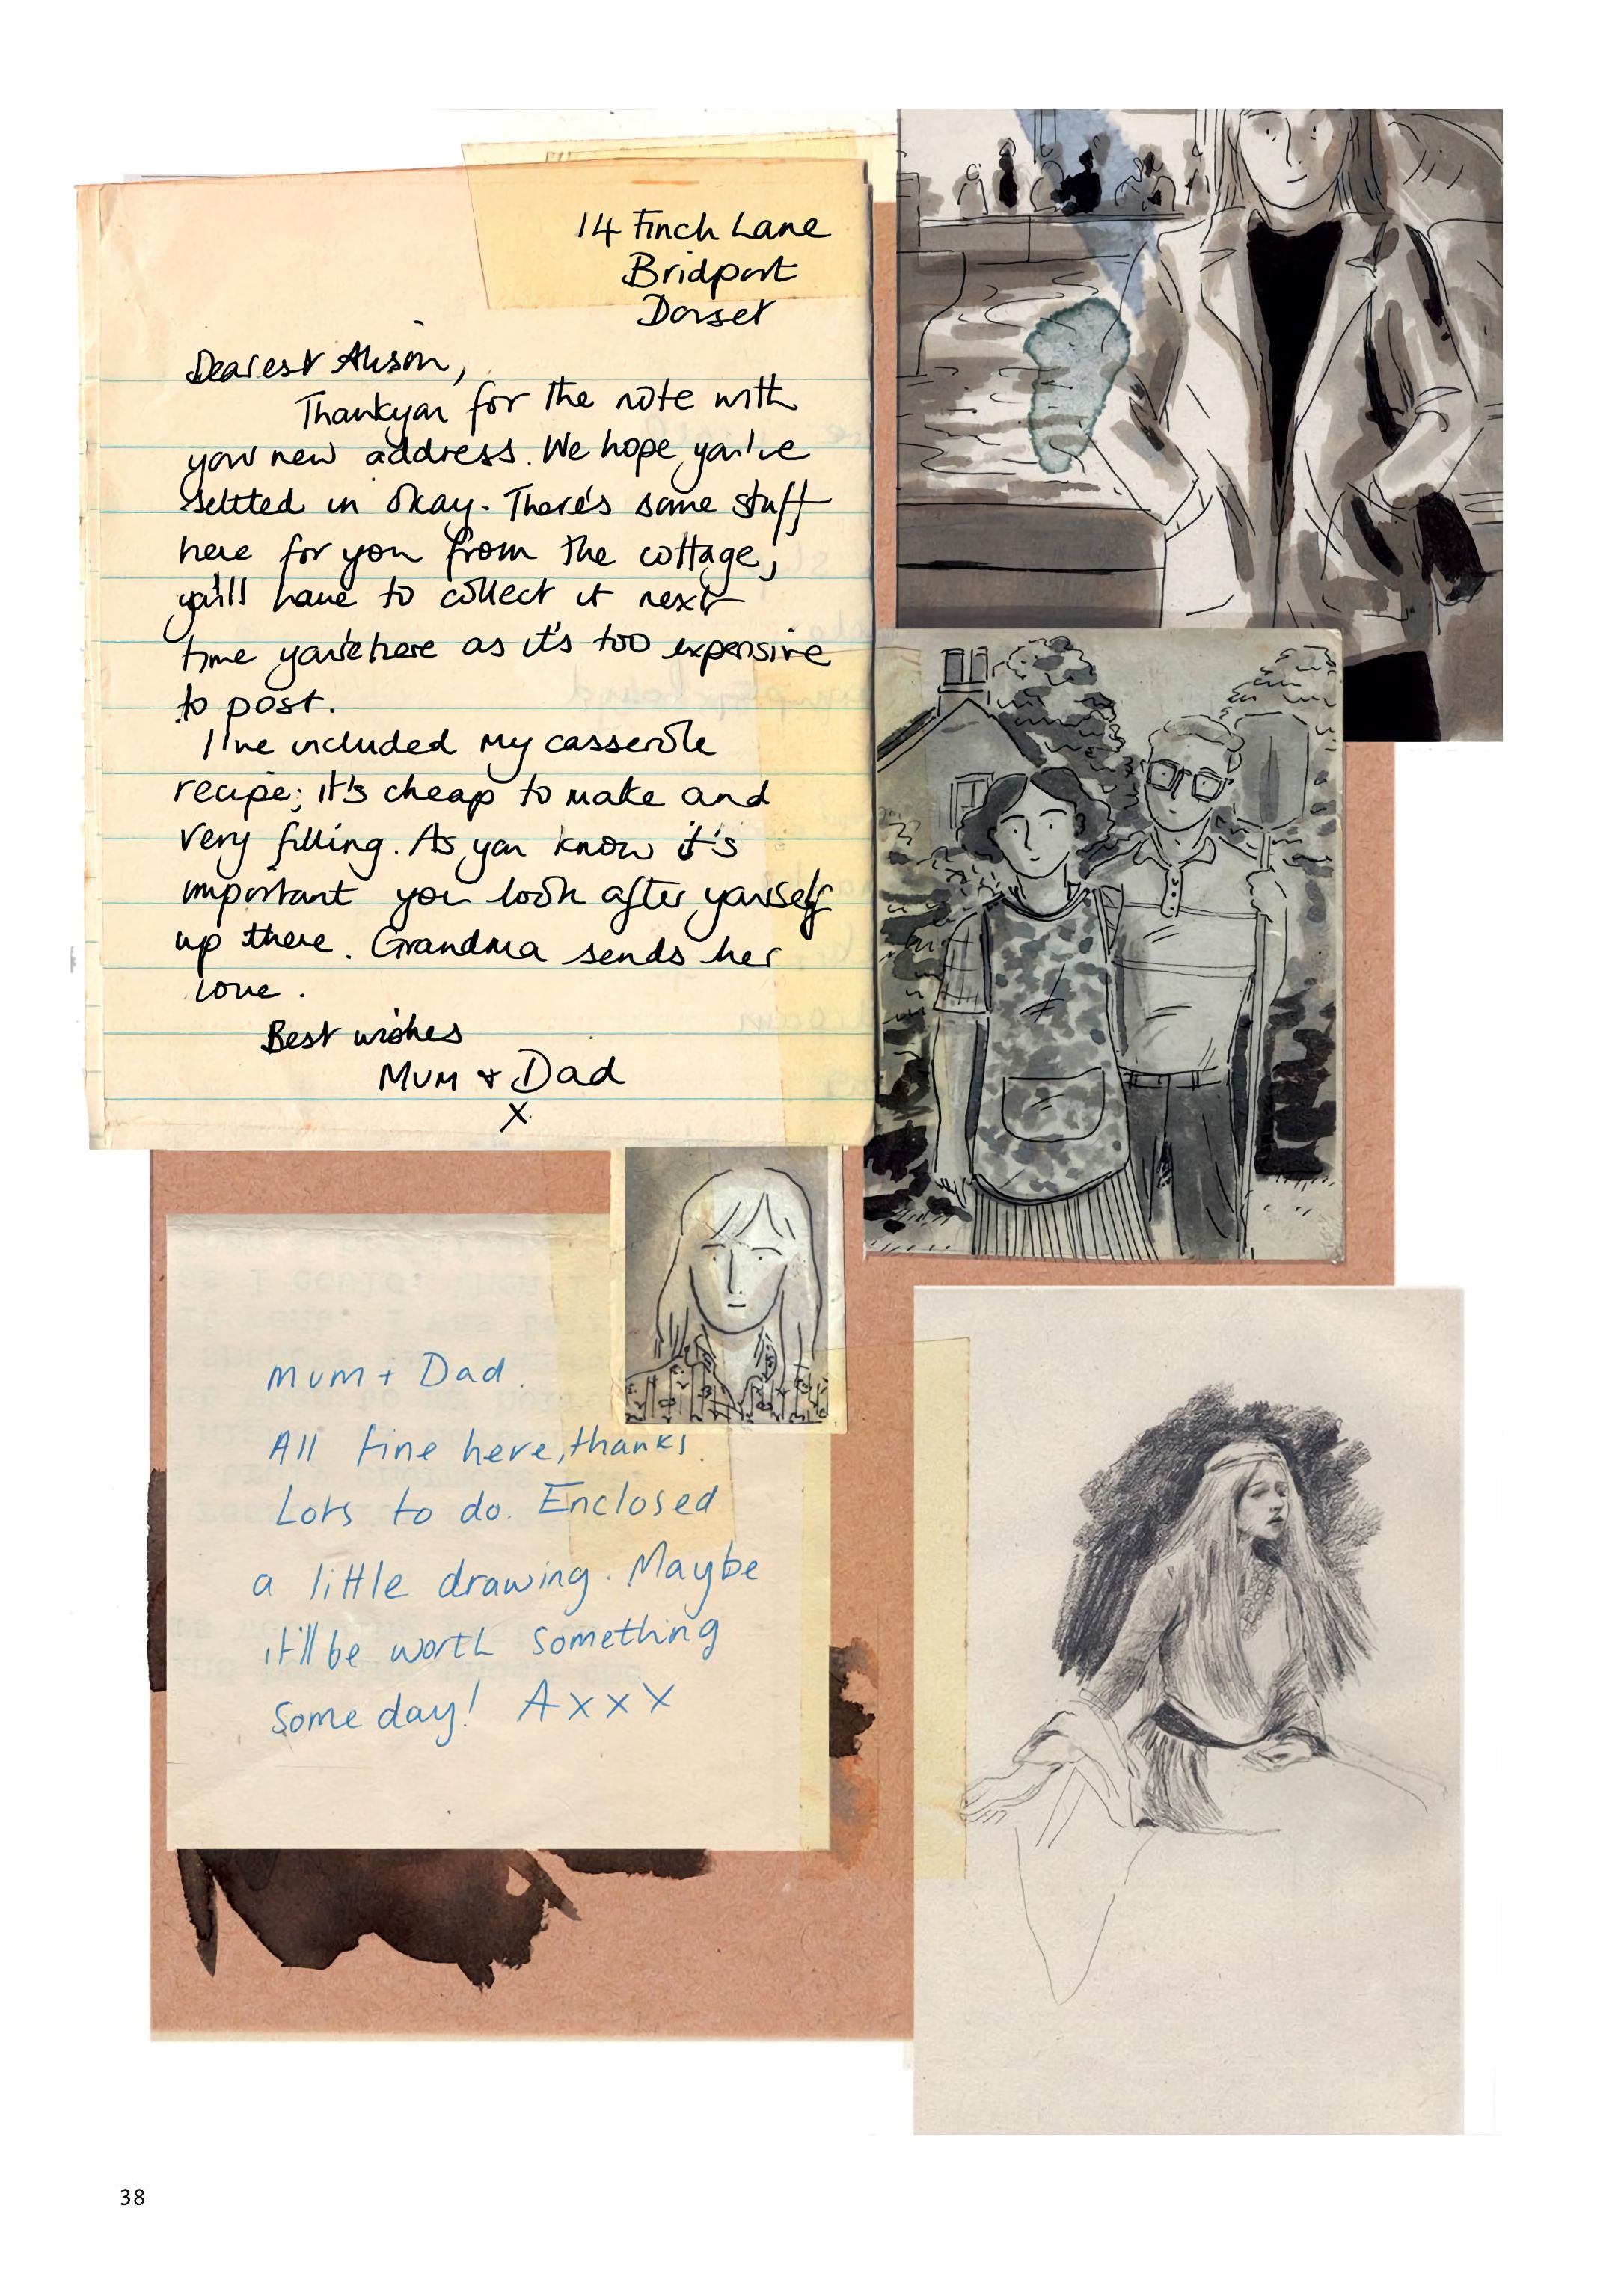 14 Finch Lane
Bridport
Dorset
Dearest Alison,
Thankyou for the note with
your new address. We hope you've
settled in okay. There's some stuff
here for you from the cottage;
you'll have to collect it next
time you're here as it's too expensive
to post.
I've included my casserole
recipe; it's cheap to make and
very filling. As you know it's
important you look after yourself
up there. Grandma sends her
love.
Best wishes
Mum + Dad
x
Mum + Dad.
All fine here, thanks.
Lots to do. Enclosed
a little drawing. Maybe
it'll be worth something
some day! A x x x
38